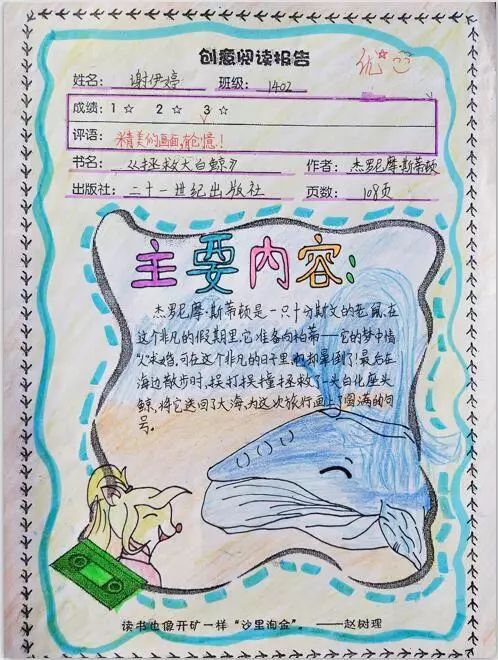 创意阅读报告
优
姓名： 谢伊婷 班级： 1402
成绩：1☆ 2☆ 3☆
评语： 精美的画面,
书名： 《拯救大白鲸》 作者： 杰罗尼摩·斯蒂顿
出版社： 二十一世纪出版社 页数： 108页
主要内容：
杰罗尼摩·斯蒂顿是一只十分斯文的老鼠,在
这个非凡的假期里,它准备向柏蒂——它的梦中情
人求婚,可在这个非凡的日子里,他却晕倒了!最后在
海边散步时,误打误撞拯救了一头白化座头
鲸,将它送回了大海,为这次旅行画上了圆满的句
号。
读书也像开矿一样“沙里淘金”。 ——赵树理